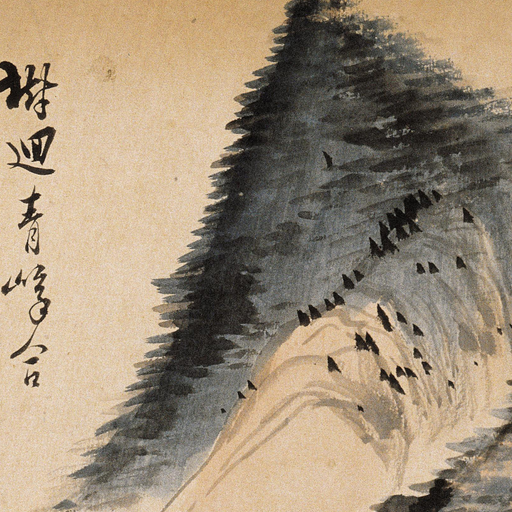 迴青峰合